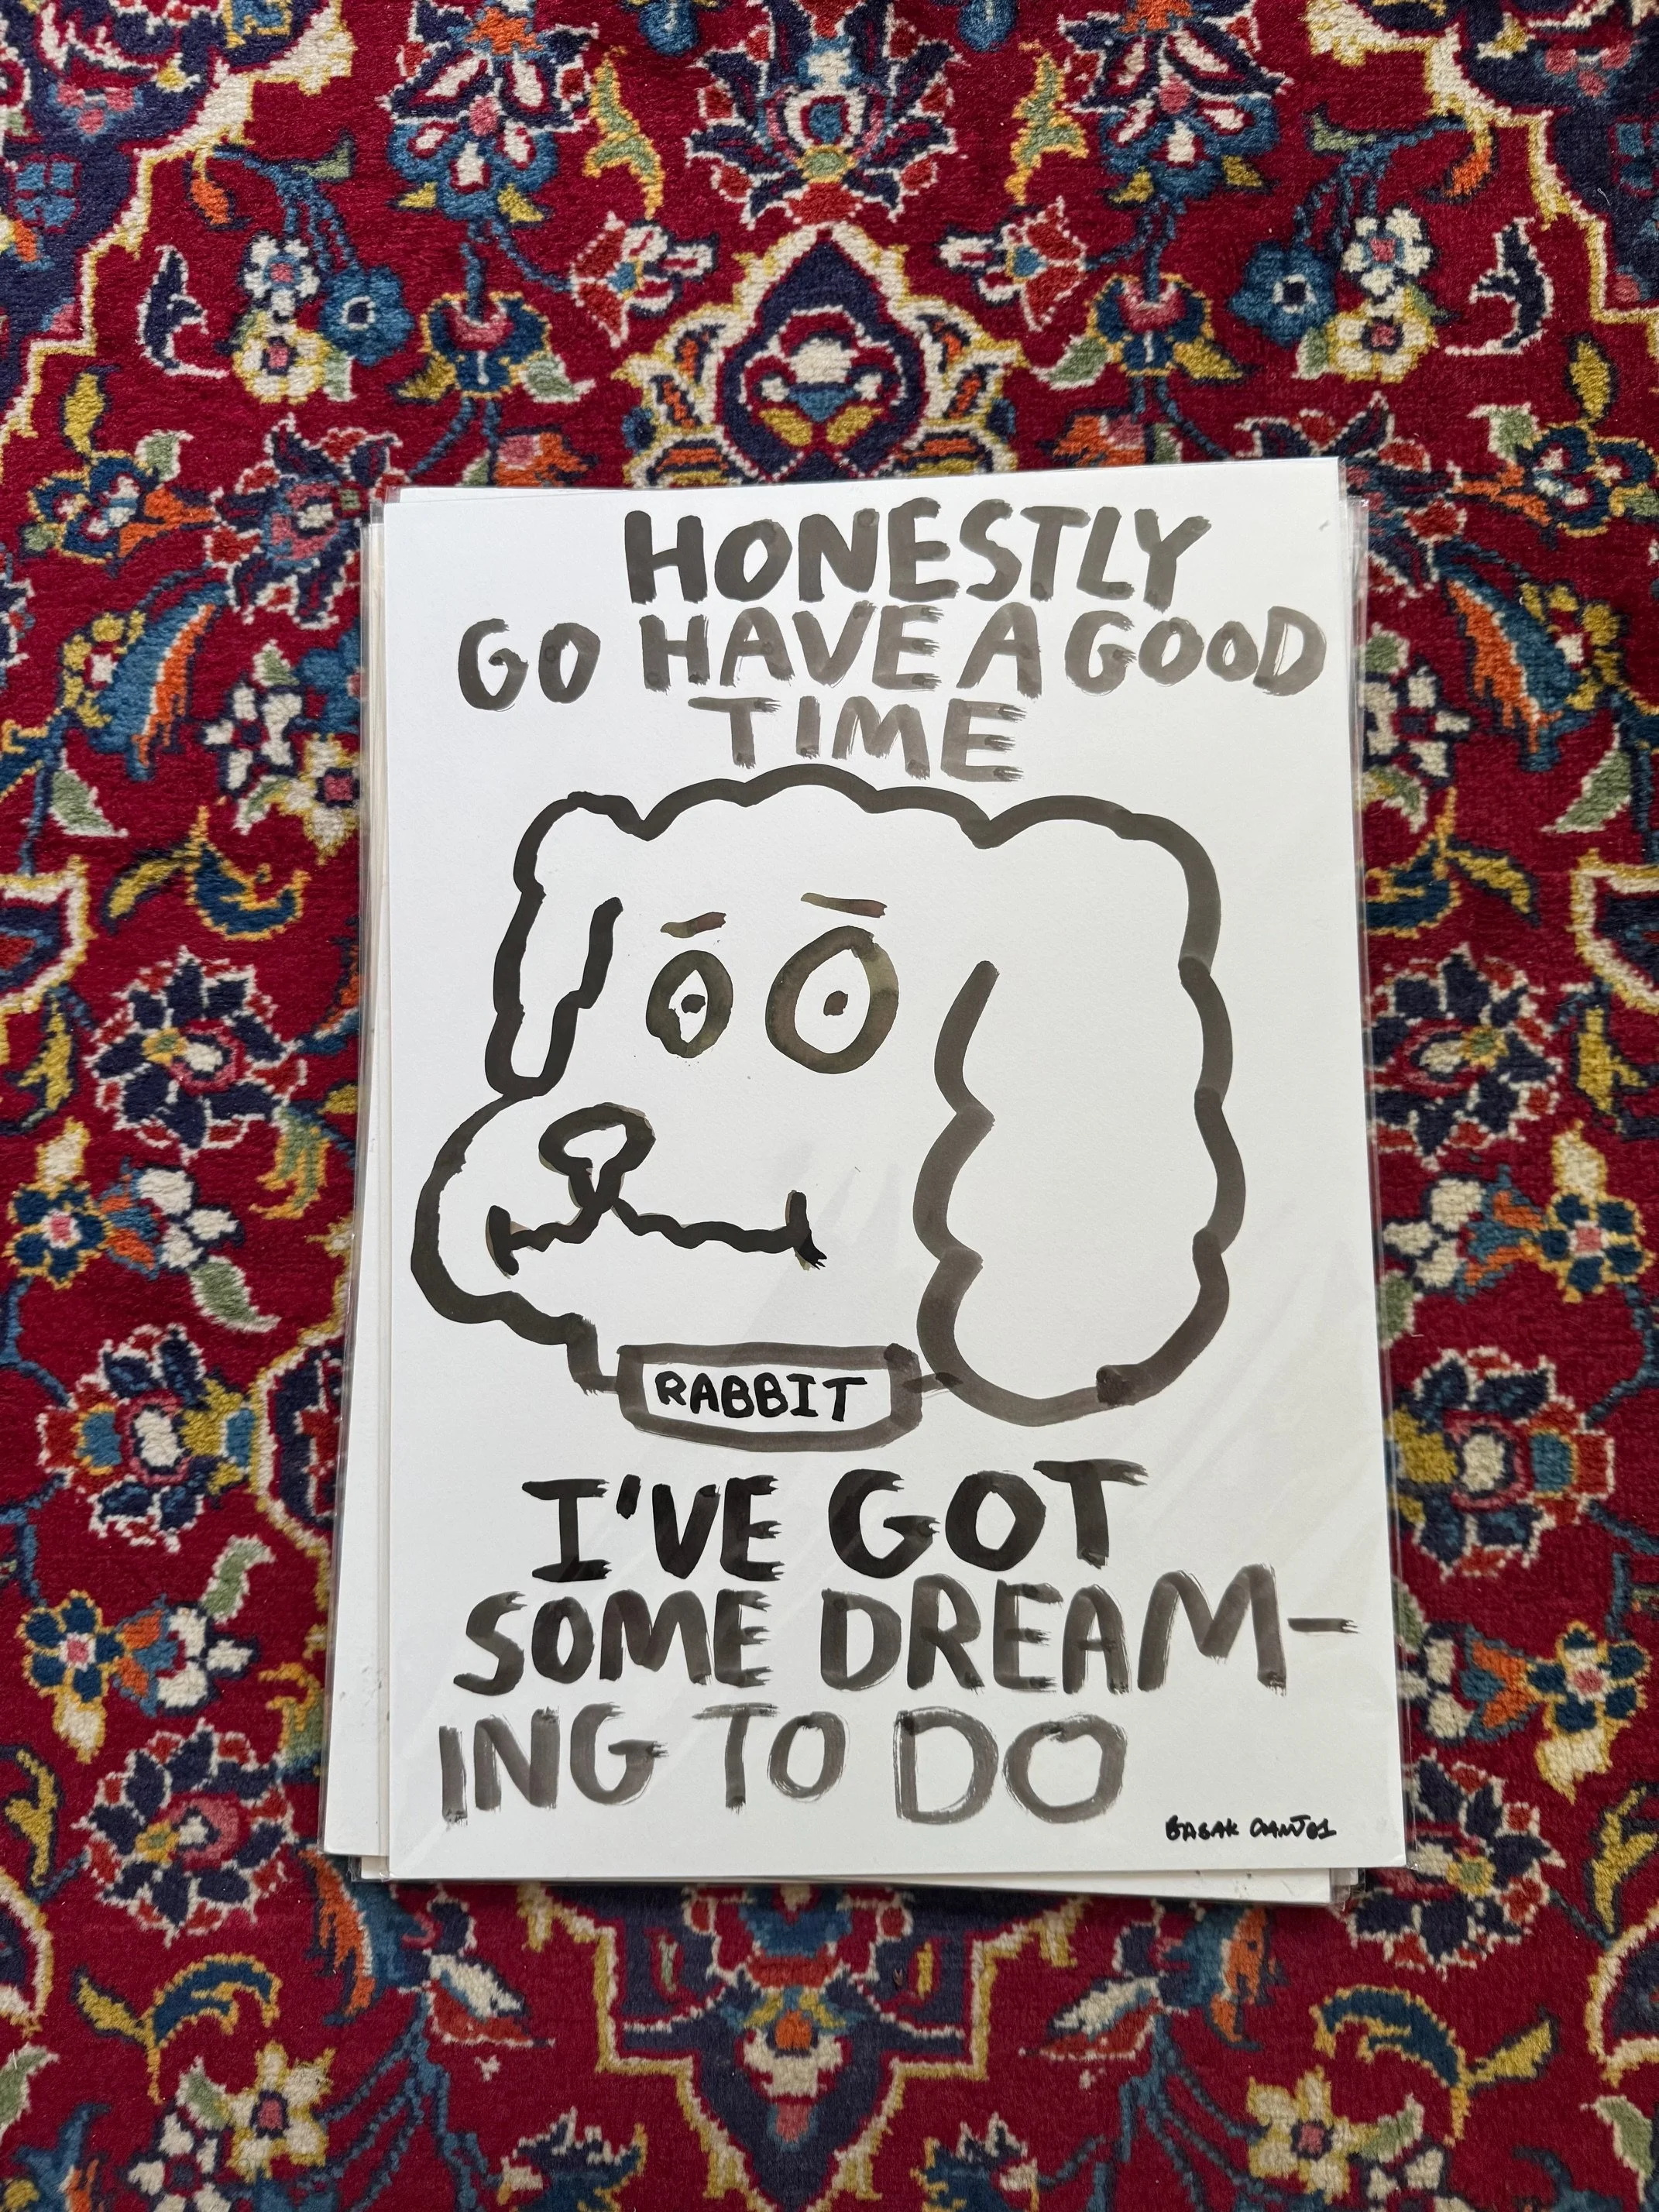 HONESTLY
GO HAVE A GOOD
TIME
RABBIT
I'VE GOT
SOME DREAM-
ING TO DO